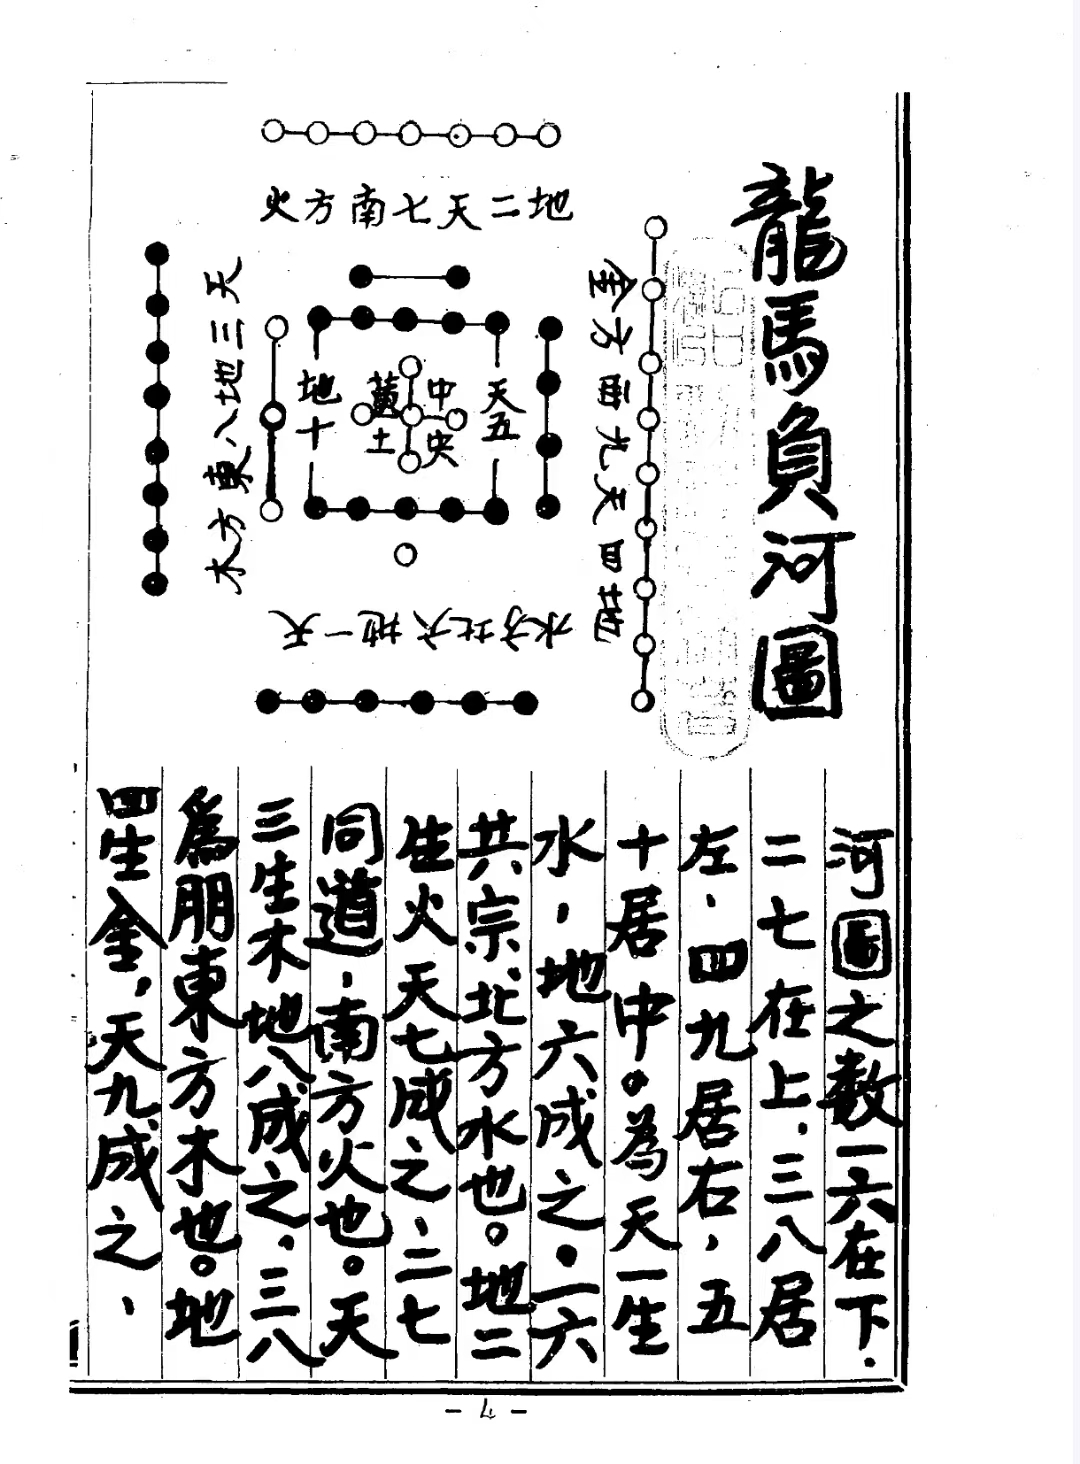 龍馬負河圖
地二天七南方火
天三地八東方木
地四天九西方金
天一地六北方水
中央
黃土
天五
地十
河圖之數一六在下．
二七在上．三八居
左、四九居右，五
十居中。為天一生
水，地六成之．一六
共宗、北方水也。地二
生火天七成之、二七
同道，南方火也。天
三生木地八成之．三八
為朋東方木也。地
四生金，天九成之、
- 4 -